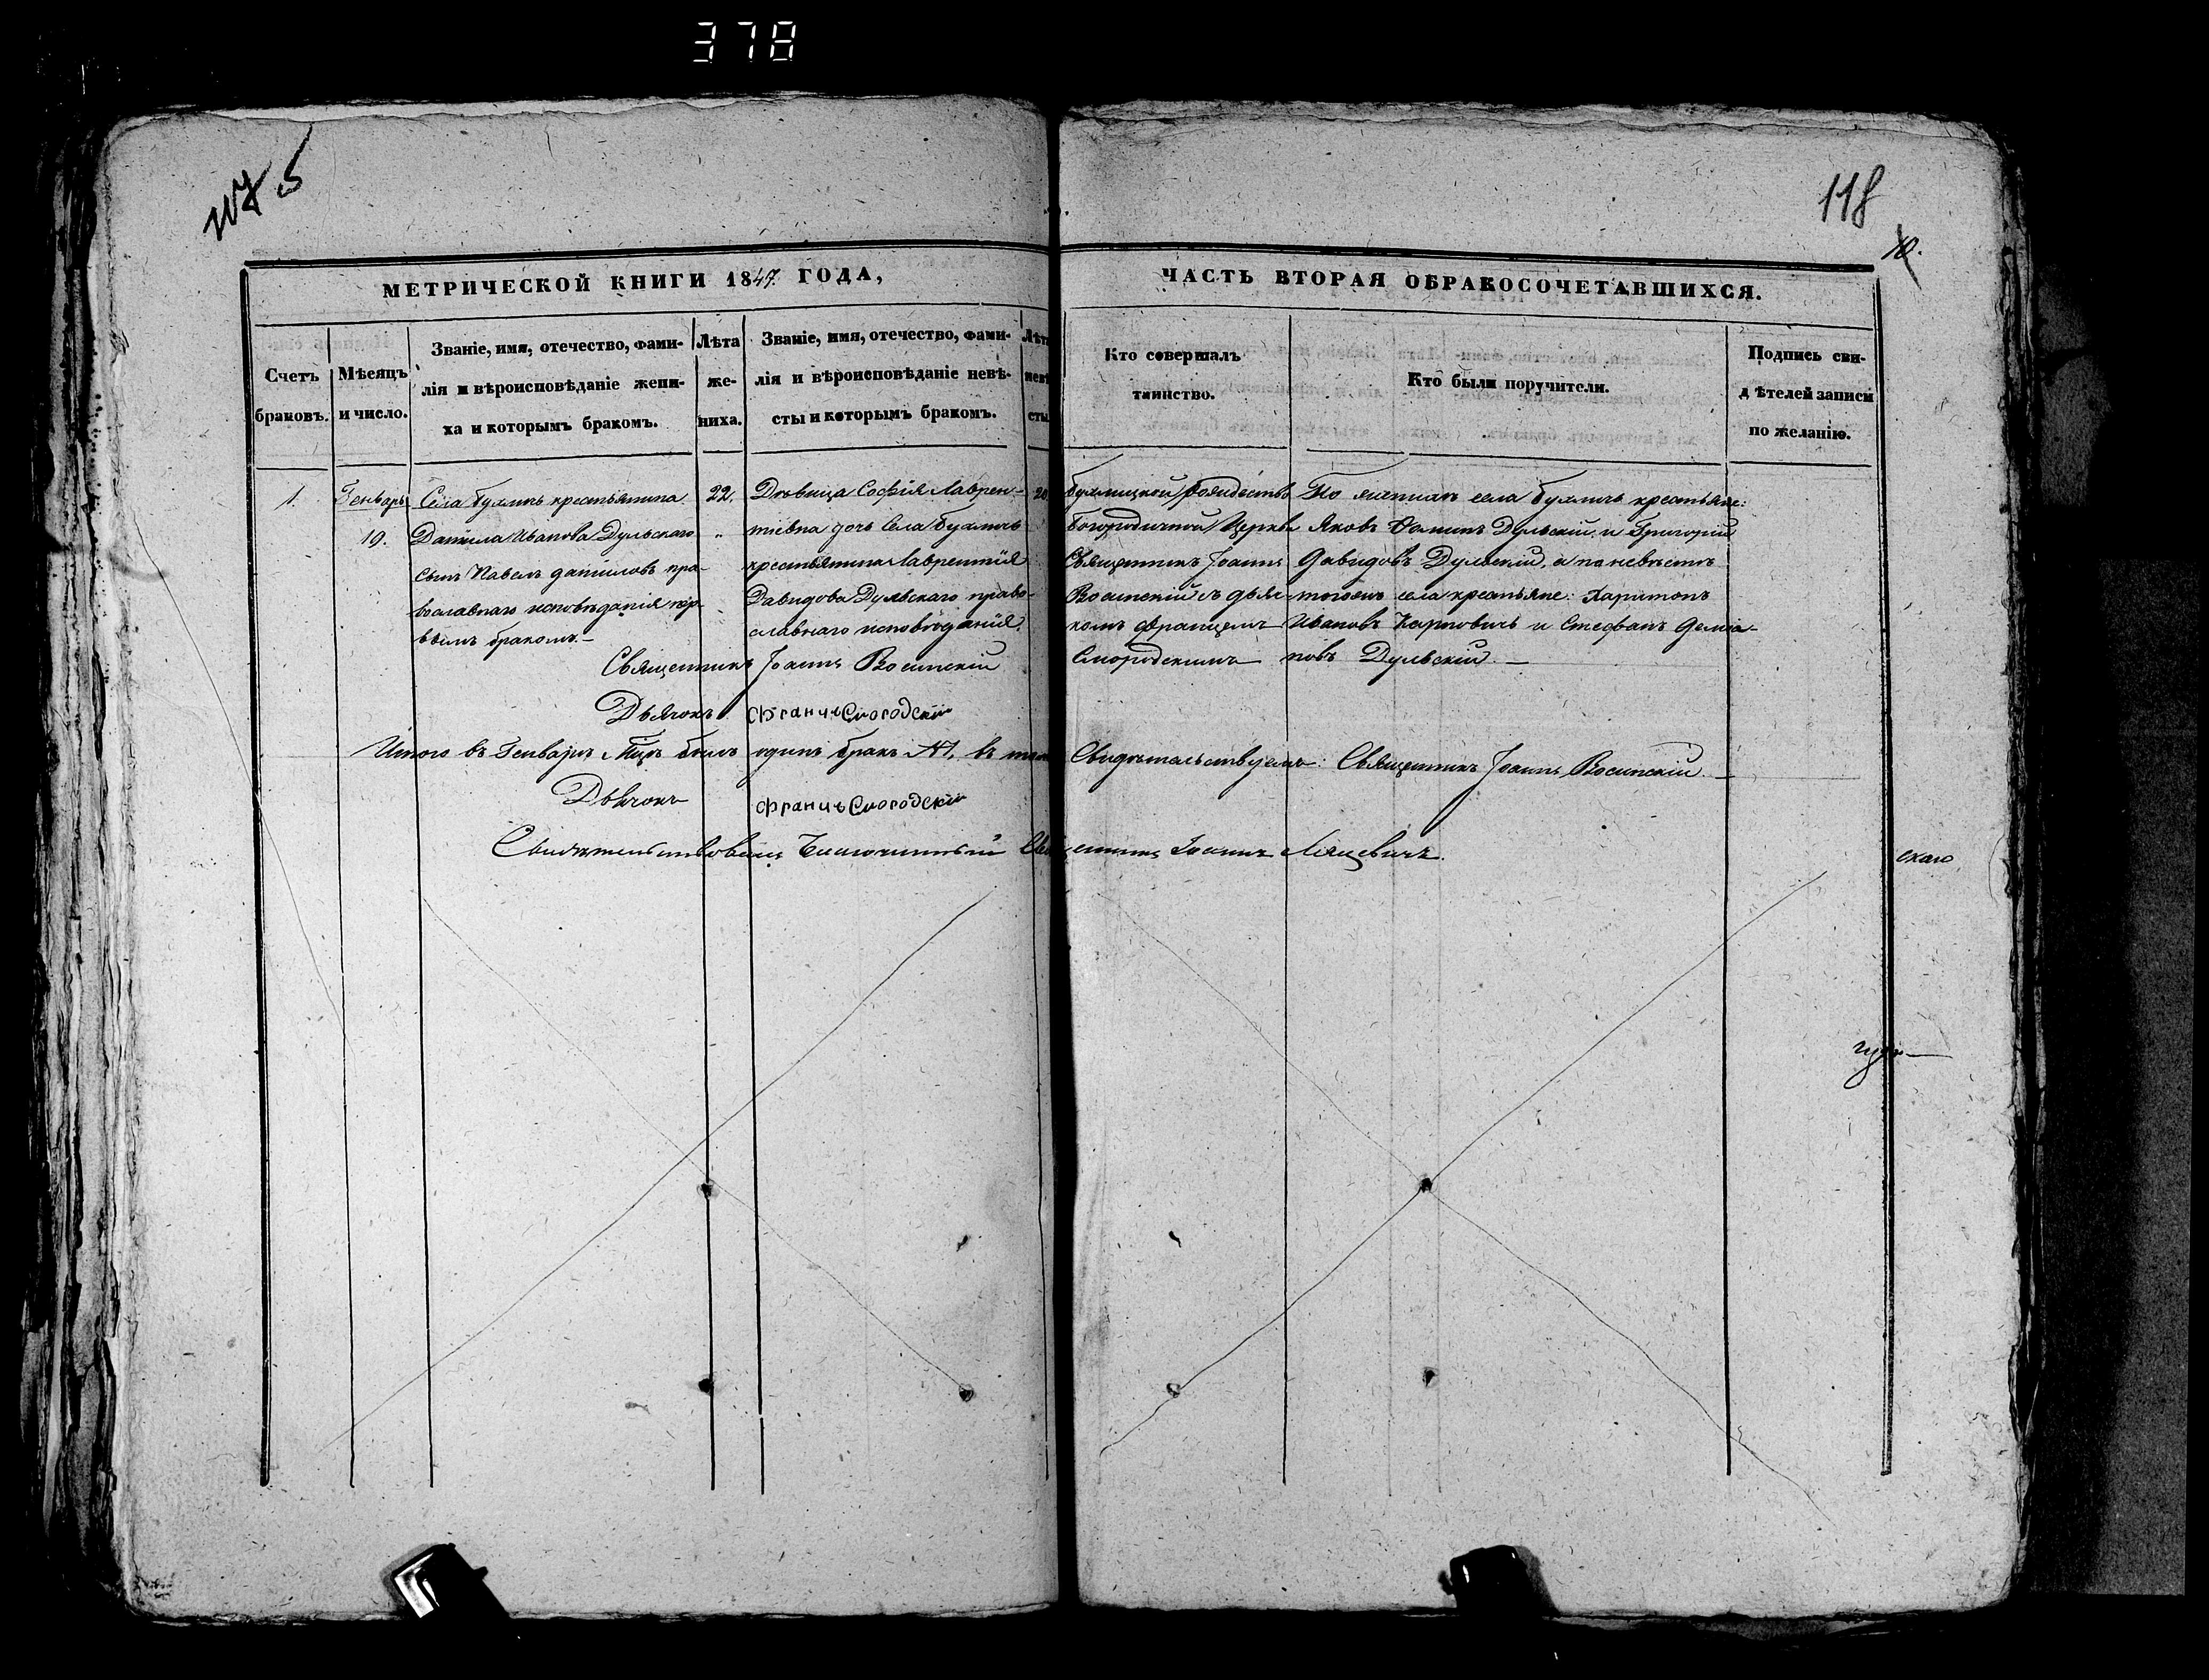 378
5
118
10.
МЕТРИЧЕСКОЙ КНИГИ 1847 ГОДА,
ЧАСТЬ ВТОРАЯ ОБРАКОСОЧЕТАВШИХСЯ.
Счетъ браковъ.
Мѣсяцъ и число.
Званіе, имя, отечество, фами-
лія и вѣроисповѣданіе жени-
ха и которымъ бракомъ.
Лѣта же-
ниха.
Званіе, имя, отечество, фами-
лія и вѣроисповѣданіе невѣ-
сты и которымъ бракомъ.
Лѣта
невѣ
сты
Кто совершалъ
таинство.
Кто были поручители.
Подпись сви-
дѣтелей записи
по желанію.
1.
Генварь
19.
Села Буxличъ крестьянина
Даніила Иванова Дульскаго
сынъ Павелъ Даніиловъ пра-
вославнаго исповѣданія пер-
вымъ бракомъ. –
22.
„
Дѣвица Софія Лаврен-
тіевна дочь Села Бухличъ
крестьянина Лаврентія
Давидова Дульскаго право-
славнаго исповѣданія.
20
Бухлицкой Рождество
Богородичной Церкви
Священникъ Іоаннъ
Восинскій съ дьяч-
комъ Францемъ
Смородскимъ
По женихѣ села Бухличъ крестьяне:
Яковъ Ѳоминъ Дульскій, и Григорій
Давидовъ Дульскій, а по невѣстѣ
тогоже села крестьяне: Харитонъ
Ивановъ Карповичъ и Стефанъ Демья-
новъ Дульскій. –
Священникъ Іоаннъ Восинскій
Дьячокъ Францъ Смородскій
Итого въ Генварѣ Мцѣ былъ одинъ бракъ №1, въ томъ Свидѣтельствуемъ: Священникъ Іоаннъ Восинскій. –
Дьячокъ Францъ Смородскій
Свидѣтельствовалъ Благочинный Священникъ Іоаннъ Ляцевичъ.
скаго